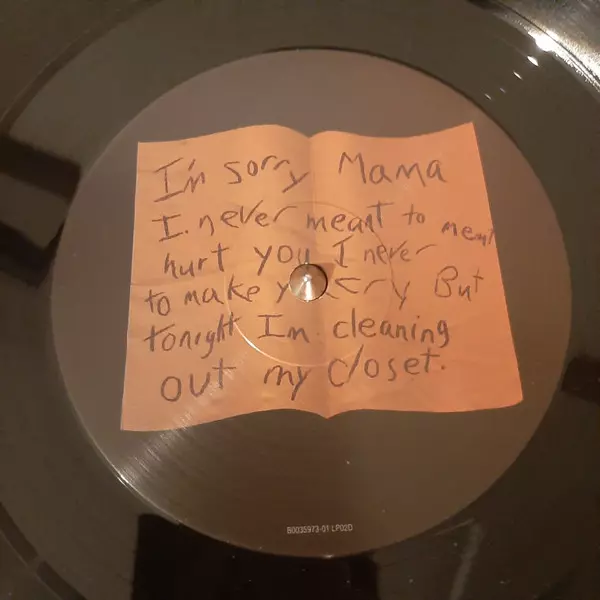 I'm sorry Mama
I. never meant to
hurt you I never meant
to make y cry But
tonight Im cleaning
out my closet.
B0035973-01 LP02D